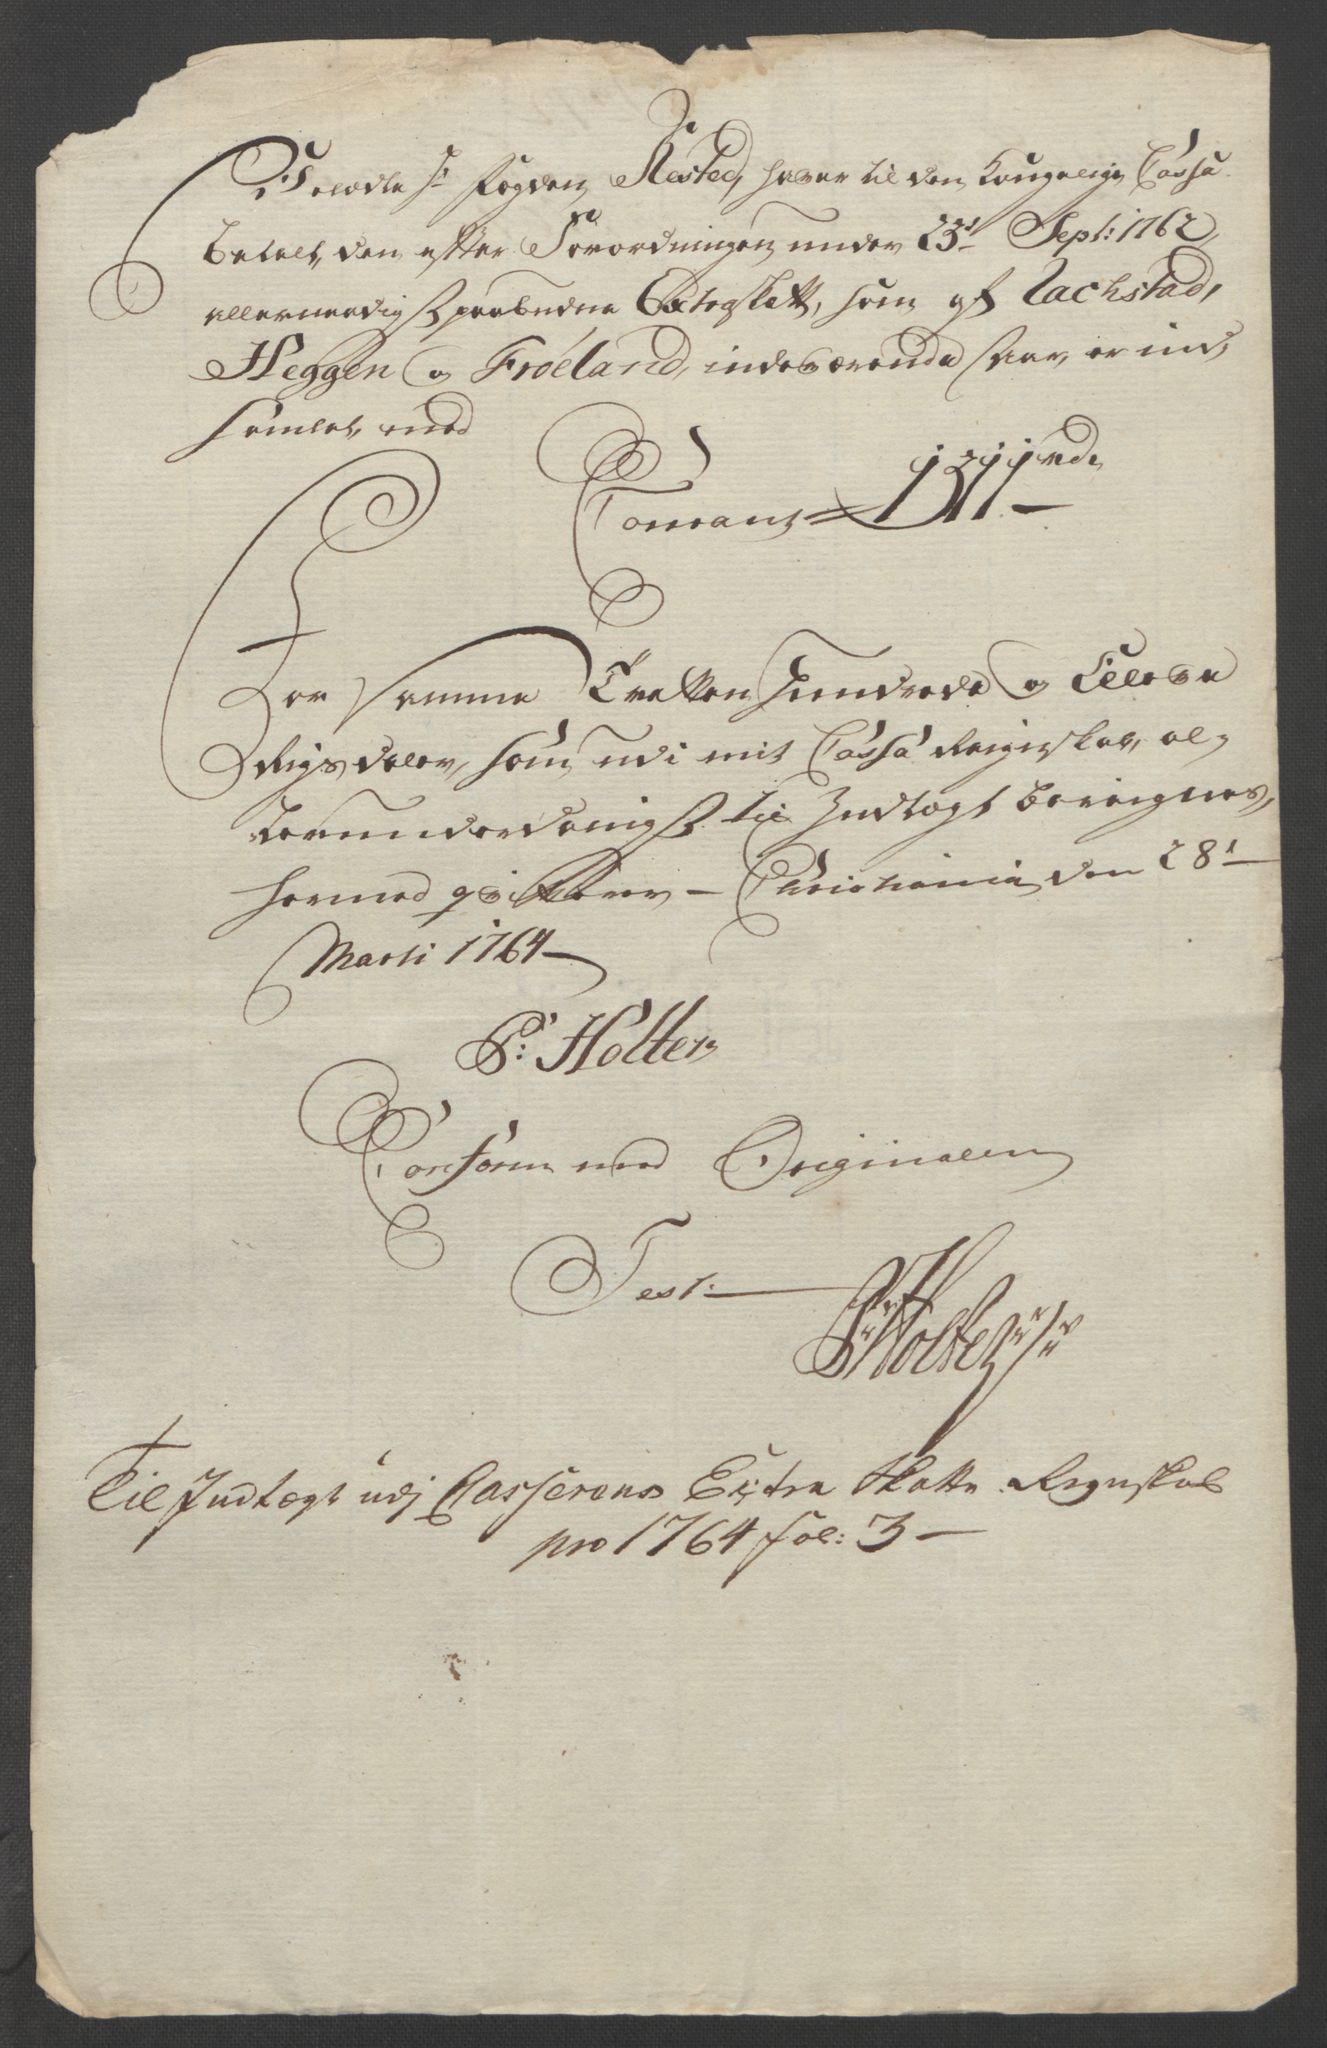 Velædle Hr Fogden Rested, haver til den Kongelige Cassa
betalt, den efter Forordningen under 23d Sept: 1762,
allernaadigst paabudne Extraskatt, som af Rachstad,
Heggen og Frøeland, indeværende Aar, er ind,
samlet, med
Courant 1311 rd,
For samme Tretten Hundrede og Elleve
Rigsdaler, som udi mit Cassa Regnskab, al,
lerunderdanigst til Indtægt beregnes,
hermed qvitterer – Christiania den 28d
Marti 1764
P: Holter
Conform med Originalen
Test:
P: Holter
Til Indtægt udj Casserens Extra Skatte Regnskab
pro 1764 fol: 3 –